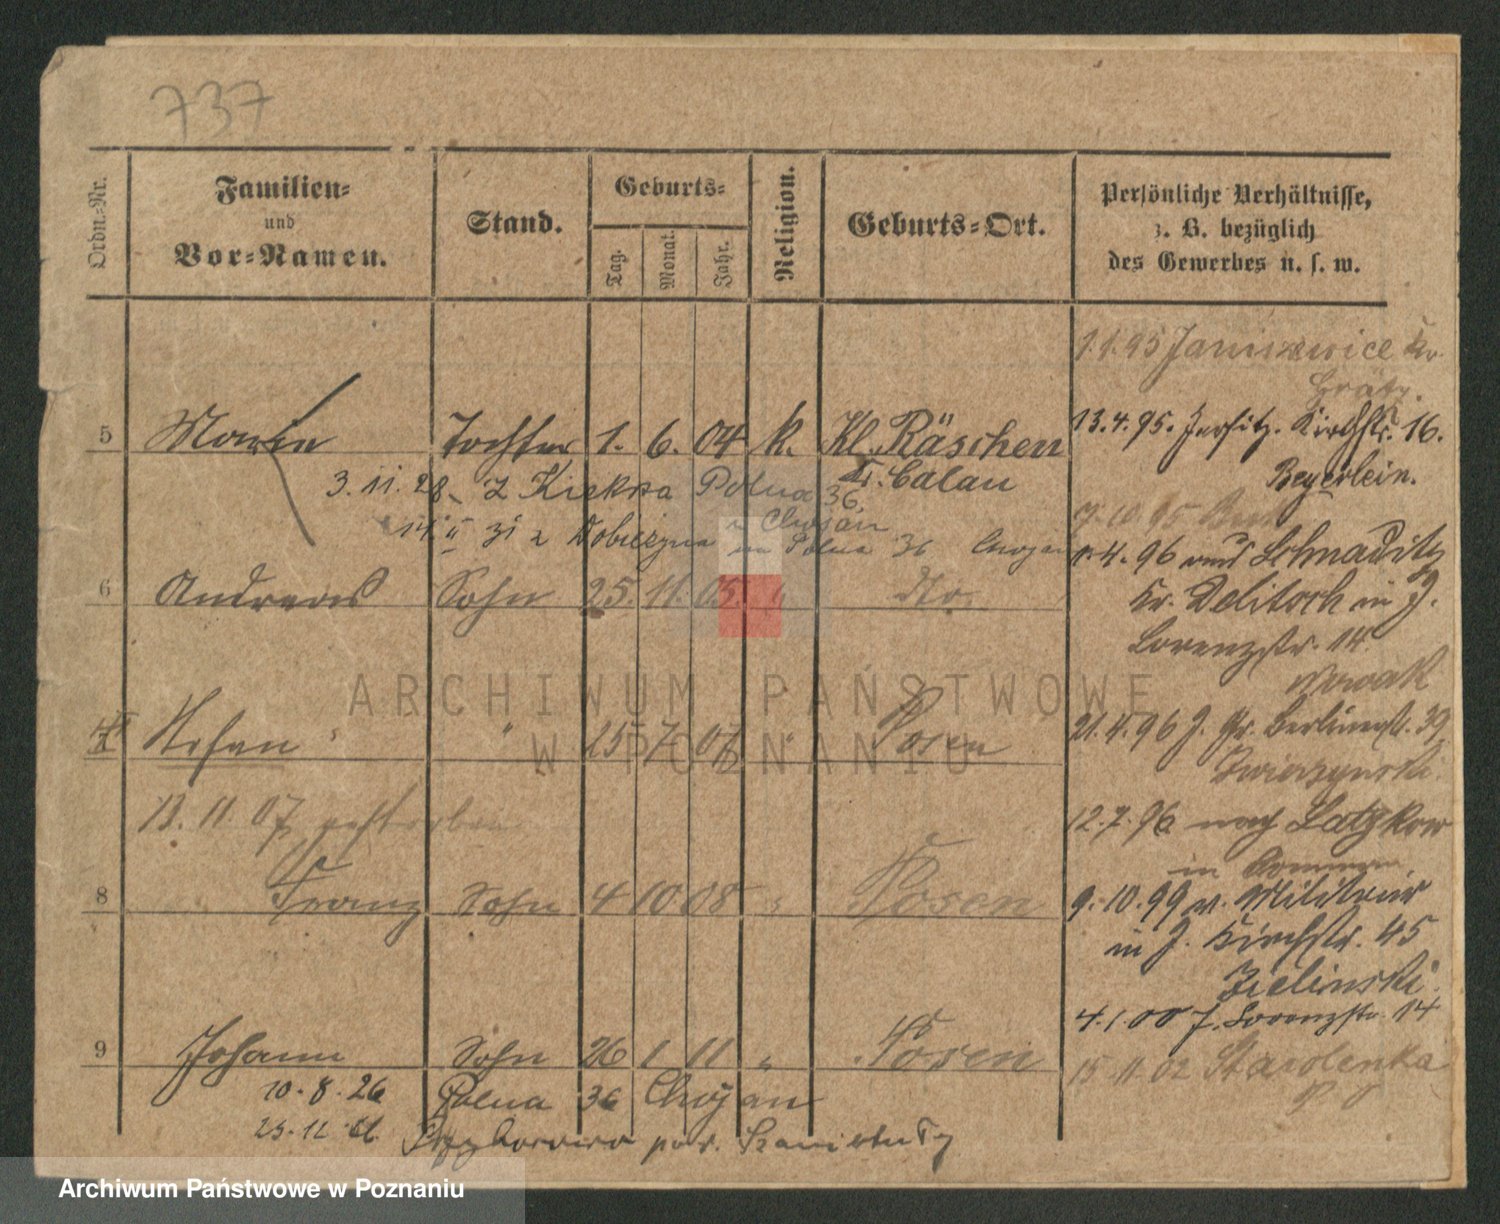 737
Ordn.-Nr.
Familien-
und
Vor-Namen.
Stand.
Geburts-
Tag.
Monat.
Jahr.
Religion.
Geburts-Ort.
Persönliche Verhältnisse,
z. B. bezüglich
des Gewerbes u. s. w.
5 Marie Tochter 1. 6. 04 k. Kl. Räschen
Kr. Calau
3.11.28 z Kiekrza Polna 36
Chojan
14 II 31 z Dobieżyna Polna 36 Chojan
6 Andreas Sohn 25. 11. 05. " dto.
Stefan " " 25 7 07 " Posen
13. 11 07 gestorben
8 Franz Sohn 4 10 08 " Posen
9 Johann Sohn 26 1 11 " Posen
10.8.26 Polna 36 Chojan
pow. Szamotuły
1.1.95 Kr.
Grätz.
13.4.95. Jersitz. Kirchstr. 16.
Beyerlein.
7.10.95
1.4.96 aus Schnaditz
Kr. Delitsch in J.
Lorenzstr. 14
Nowak
21.4.96 J. Gr. Berlinerstr. 39
12.7.96 nach Latzkow
in Pommern
9.10.99 v. Militär
in J. Kirchstr. 45
Zielinski.
4.1.00 J. Lorenzstr. 14
15.11.02 Starolenka
ARCHIWUM PAŃSTWOWE
W POZNANIU
Archiwum Państwowe w Poznaniu